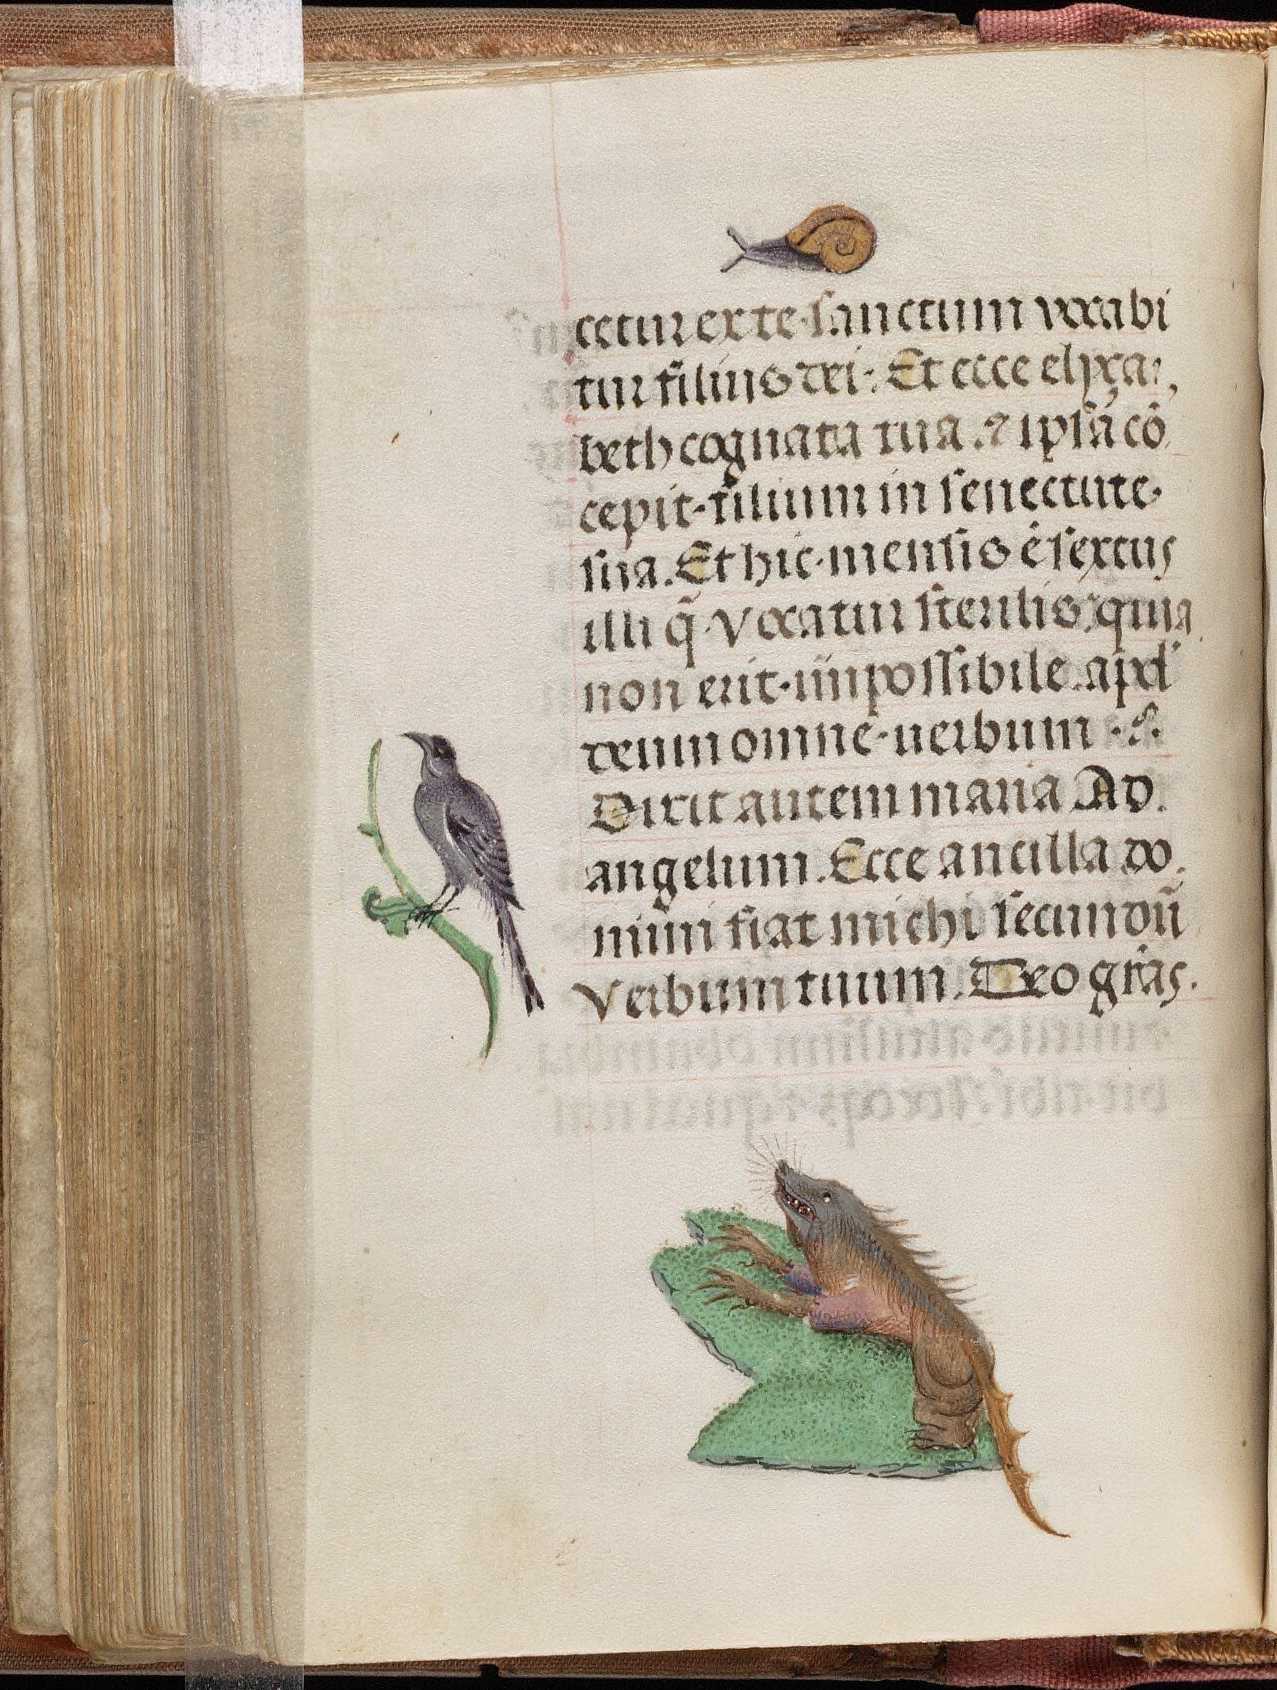 cetur ex te sanctum vocabi
tur filius dei. Et ecce elyza
beth cognata tua. & ipsa cō
cepit filium in senectute
sua. Et hic mensis ē sextus
illi q̄ vocatur sterilis: quia
non erit impossibile apd'
deum omne uerbum.
Dixit autem maria Ad.
angelum. Ecce ancilla do
mini fiat michi secundū
verbum tuum. Deo grās.